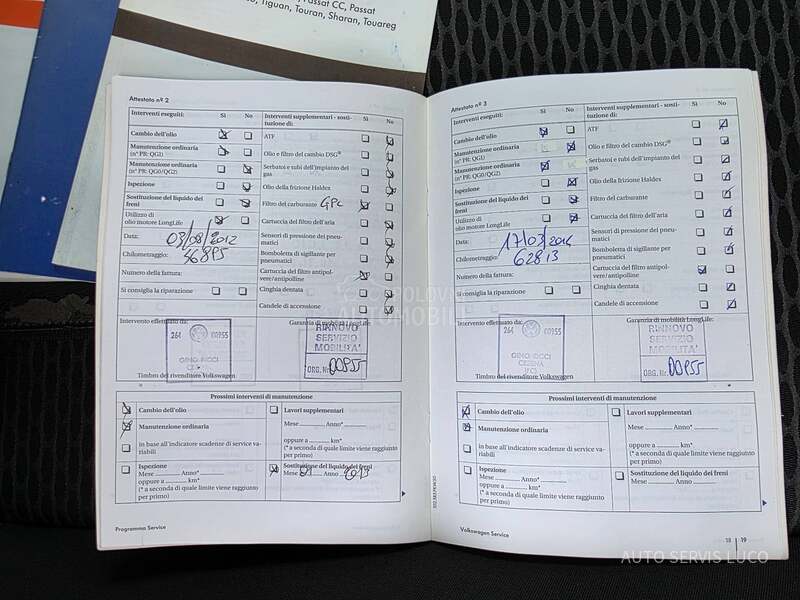 Passat CC, Passat
Tiguan, Touran, Sharan, Touareg
Attestato nº 2
Interventi eseguiti: Sì No
Cambio dell'olio
Manutenzione ordinaria
(nº PR: QG1)
Manutenzione ordinaria
(nº PR: QG0/QG2)
Ispezione
Sostituzione del liquido dei
freni
Utilizzo di
olio motore LongLife
Data: 03/08/2012
Chilometraggio: 46895
Numero della fattura:
Si consiglia la riparazione
Interventi supplementari - sosti-
tuzione di: Sì No
ATF
Olio e filtro del cambio DSG®
Serbatoi e tubi dell'impianto del
gas
Olio della frizione Haldex
Filtro del carburante GPL
Cartuccia del filtro dell'aria
Sensori di pressione dei pneu-
matici
Bomboletta di sigillante per
pneumatici
Cartuccia del filtro antipol-
vere/antipolline
Cinghia dentata
Candele di accensione
Intervento effettuato da:
264 00955
GINO RICCI
Timbro del rivenditore Volkswagen
Garanzia di mobilità LongLife:
RINNOVO
SERVIZIO
MOBILITA'
ORG. Nr. 00955
Prossimi interventi di manutenzione
Cambio dell'olio
Manutenzione ordinaria
in base all'indicatore scadenze di service va-
riabili
Ispezione
Mese Anno*
oppure a km*
(* a seconda di quale limite viene raggiunto
per primo)
Lavori supplementari
Mese Anno*
oppure a km*
(* a seconda di quale limite viene raggiunto
per primo)
Sostituzione del liquido dei freni
Mese 01 Anno 2013
Programma Service
Attestato nº 3
Interventi eseguiti: Sì No
Cambio dell'olio
Manutenzione ordinaria
(nº PR: QG1)
Manutenzione ordinaria
(nº PR: QG0/QG2)
Ispezione
Sostituzione del liquido dei
freni
Utilizzo di
olio motore LongLife
Data: 17/03/2014
Chilometraggio: 62813
Numero della fattura:
Si consiglia la riparazione
Interventi supplementari - sosti-
tuzione di: Sì No
ATF
Olio e filtro del cambio DSG®
Serbatoi e tubi dell'impianto del
gas
Olio della frizione Haldex
Filtro del carburante
Cartuccia del filtro dell'aria
Sensori di pressione dei pneu-
matici
Bomboletta di sigillante per
pneumatici
Cartuccia del filtro antipol-
vere/antipolline
Cinghia dentata
Candele di accensione
Intervento effettuato da:
264 00955
GINO RICCI
CESENA
Timbro del rivenditore Volkswagen
Garanzia di mobilità LongLife:
RINNOVO
SERVIZIO
MOBILITA'
ORG. Nr. 00955
Prossimi interventi di manutenzione
Cambio dell'olio
Manutenzione ordinaria
in base all'indicatore scadenze di service va-
riabili
Ispezione
Mese Anno*
oppure a km*
(* a seconda di quale limite viene raggiunto
per primo)
Lavori supplementari
Mese Anno*
oppure a km*
(* a seconda di quale limite viene raggiunto
per primo)
Sostituzione del liquido dei freni
Mese Anno
Volkswagen Service
18 19
POLOVNI
AUTOMOBILI
AUTO SERVIS LUCO